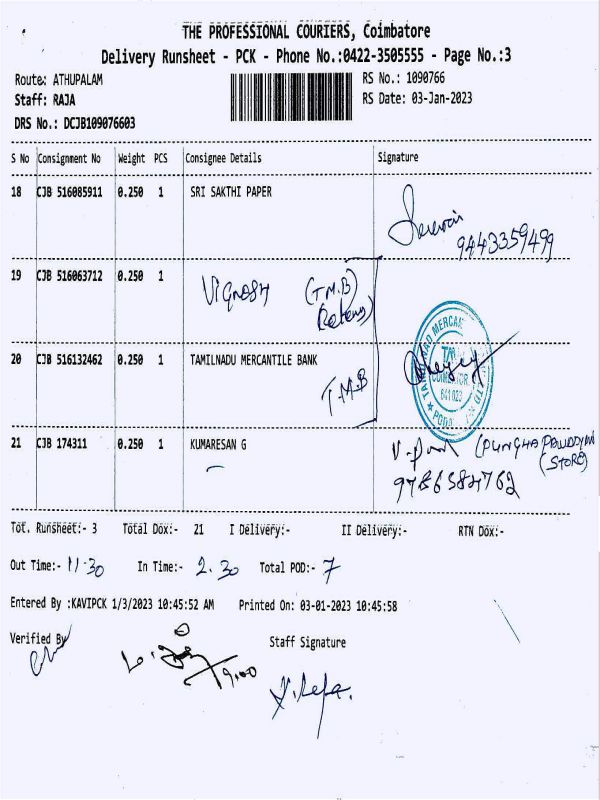 THE PROFESSIONAL COURIERS, Coimbatore
Delivery Runsheet - PCK - Phone No.:0422-3505555 - Page No.:3
Route: ATHUPALAM
RS No.: 1090766
Staff: RAJA
RS Date: 03-Jan-2023
DRS No.: DCJB109076603
S No Consignment No Weight PCS Consignee Details Signature
18 CJB 516085911 0.250 1 SRI SAKTHI PAPER
9443359499
19 CJB 516063712 0.250 1 Vignesh (T.M.B)
20 CJB 516132462 0.250 1 TAMILNADU MERCANTILE BANK
T.M.B
21 CJB 174311 0.250 1 KUMARESAN G
(STORE)
9786584762
Tot. Runsheet:- 3 Total Dox:- 21 I Delivery:- II Delivery:- RTN Dox:-
Out Time:- 11.30 In Time:- 2.30 Total POD:- 7
Entered By :KAVIPCK 1/3/2023 10:45:52 AM Printed On: 03-01-2023 10:45:58
Verified By Staff Signature